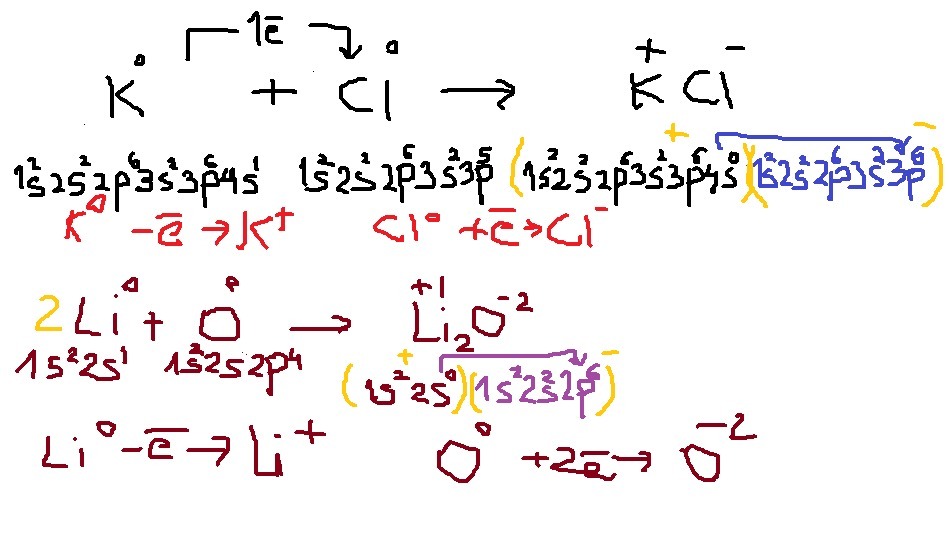 1e̅
K⁰ + Cl⁰ → K⁺Cl⁻
1s²2s²2p⁶3s²3p⁶4s¹ 1s²2s²2p⁶3s²3p⁵ (1s²2s²2p⁶3s²3p⁶4s⁰)⁺(1s²2s²2p⁶3s²3p⁶)⁻
K⁰ -e̅ → K⁺ Cl⁰ +e̅ → Cl⁻
2Li⁰ + O⁰ → Li₂⁺¹O⁻²
1s²2s¹ 1s²2s2p⁴
(1s²2s⁰)⁺(1s²2s²2p⁶)⁻
Li⁰ -e̅ → Li⁺ O⁰ +2e̅ → O⁻²